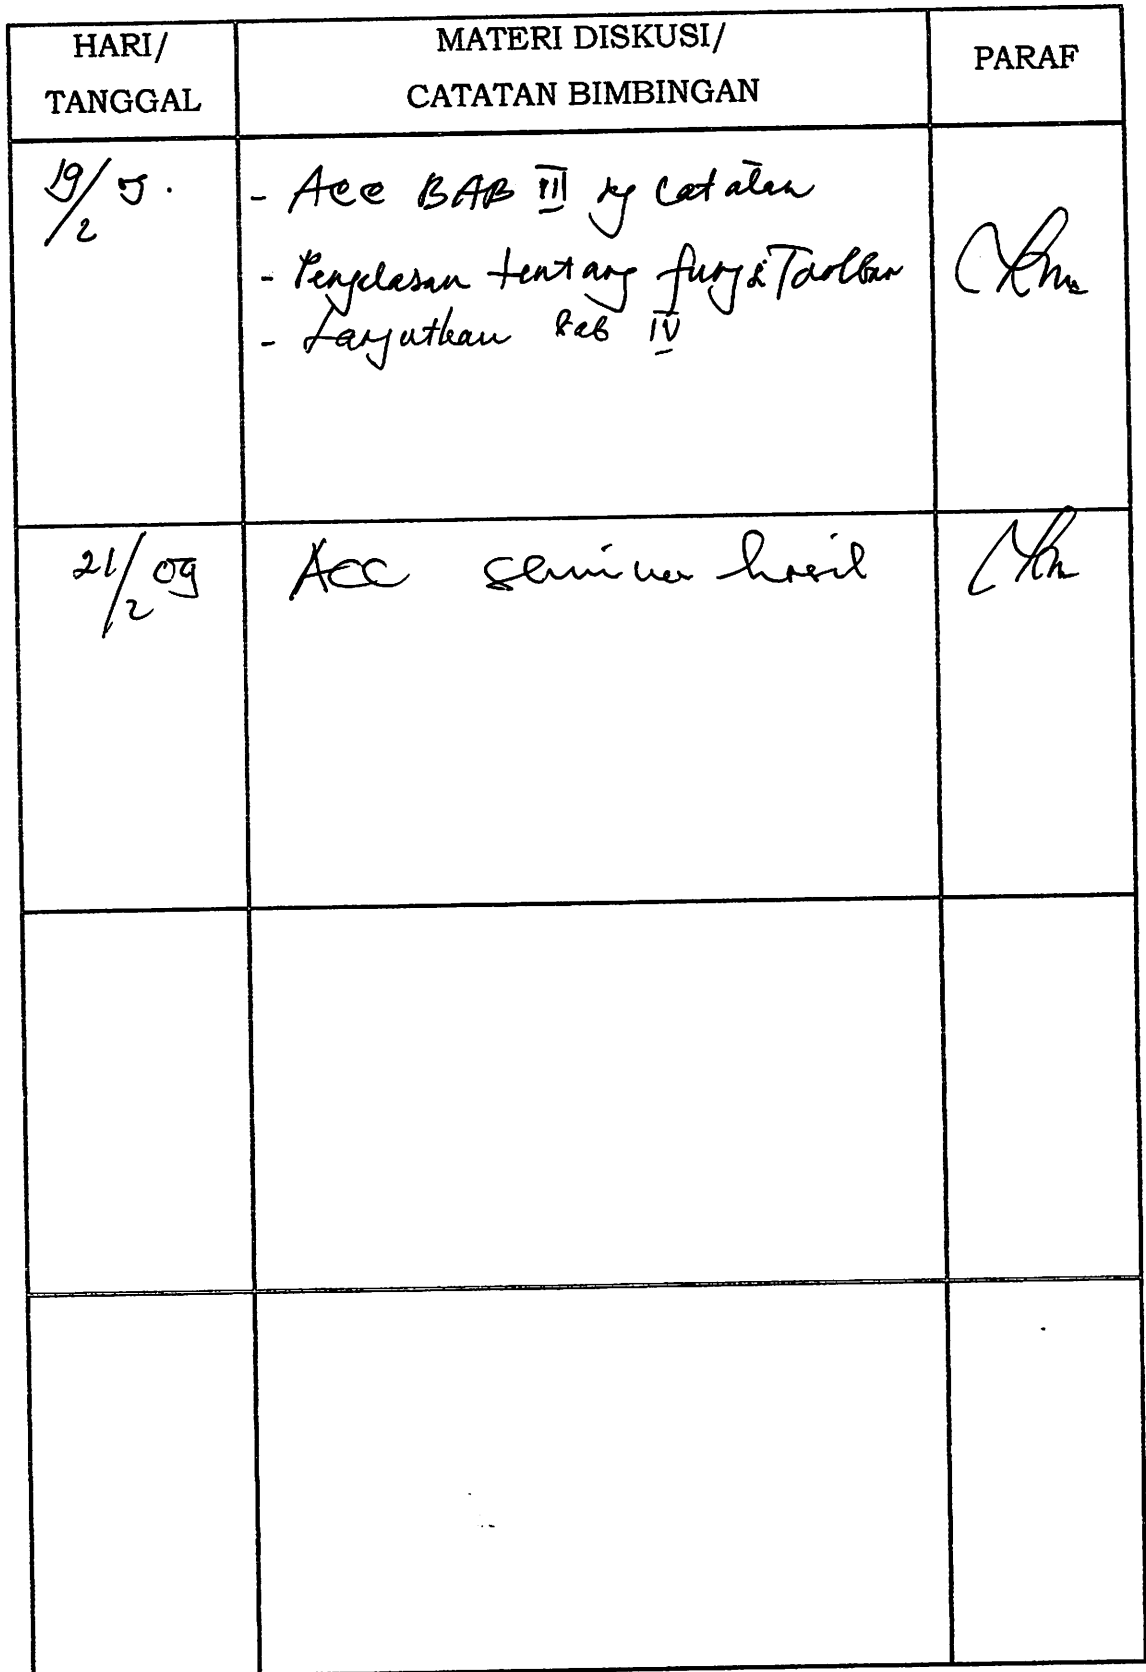 HARI/
TANGGAL
MATERI DISKUSI/
CATATAN BIMBINGAN
PARAF
19/2 09.
- Acc BAB III dg catatan
- Penjelasan tentang fungsi Toolbar
- Lanjutkan Bab IV
21/2 09
Acc seminar hasil